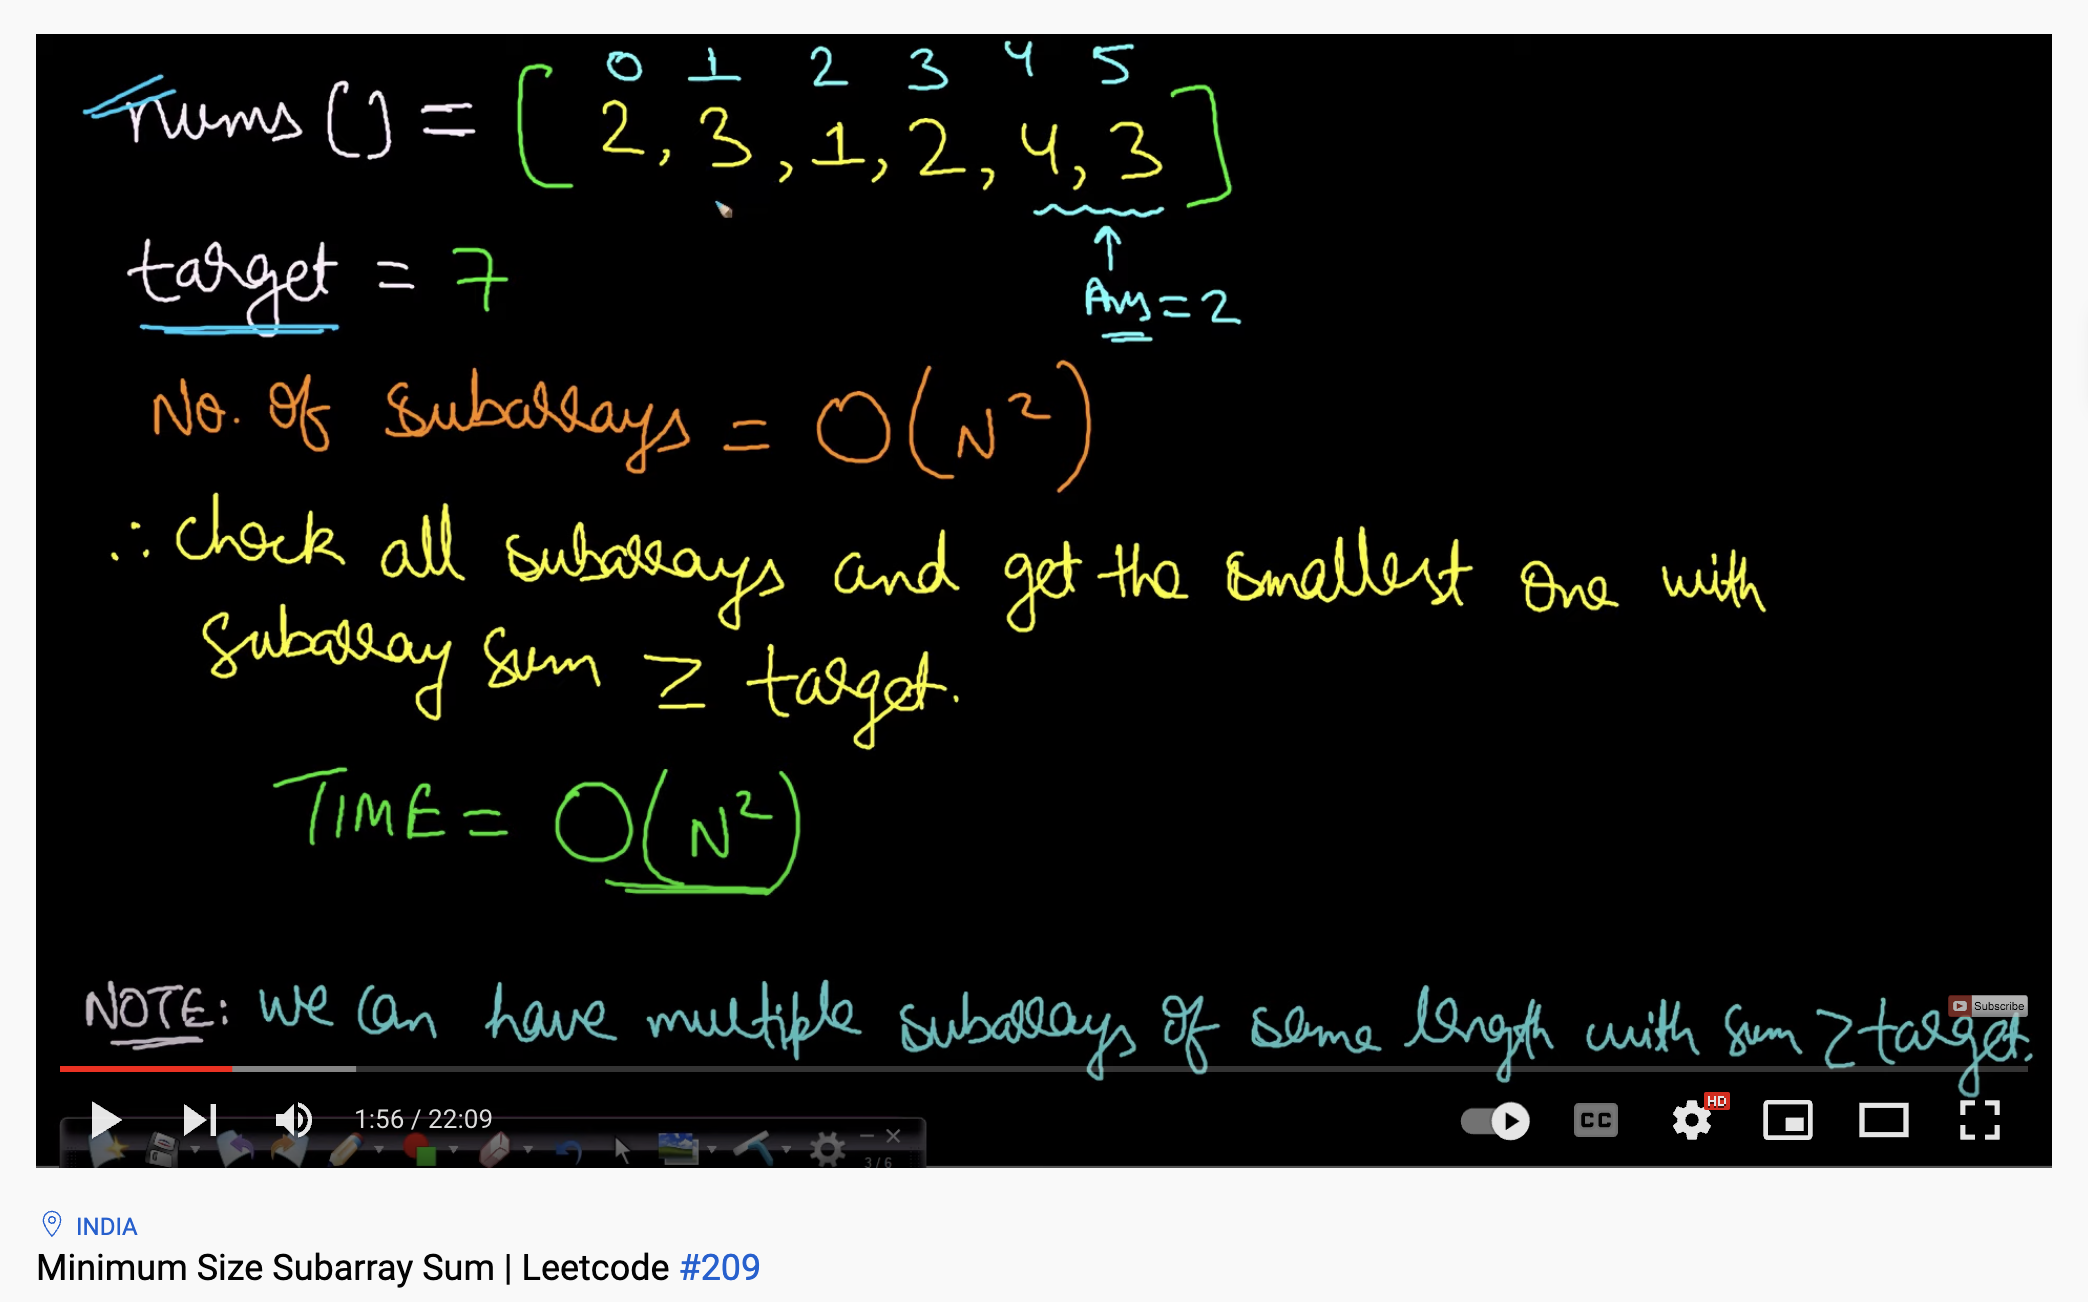 0 1 2 3 4 5
nums[] = [2, 3, 1, 2, 4, 3]
target = 7
Ans = 2
No. Of Subarrays = O(N²)
∴ Check all subarrays and get the smallest one with
Subarray Sum ≥ target.
TIME = O(N²)
NOTE: We Can have multiple subarrays Of same length with Sum ≥ target.
Subscribe
1:56 / 22:09
CC
HD
3/6
INDIA
Minimum Size Subarray Sum | Leetcode #209